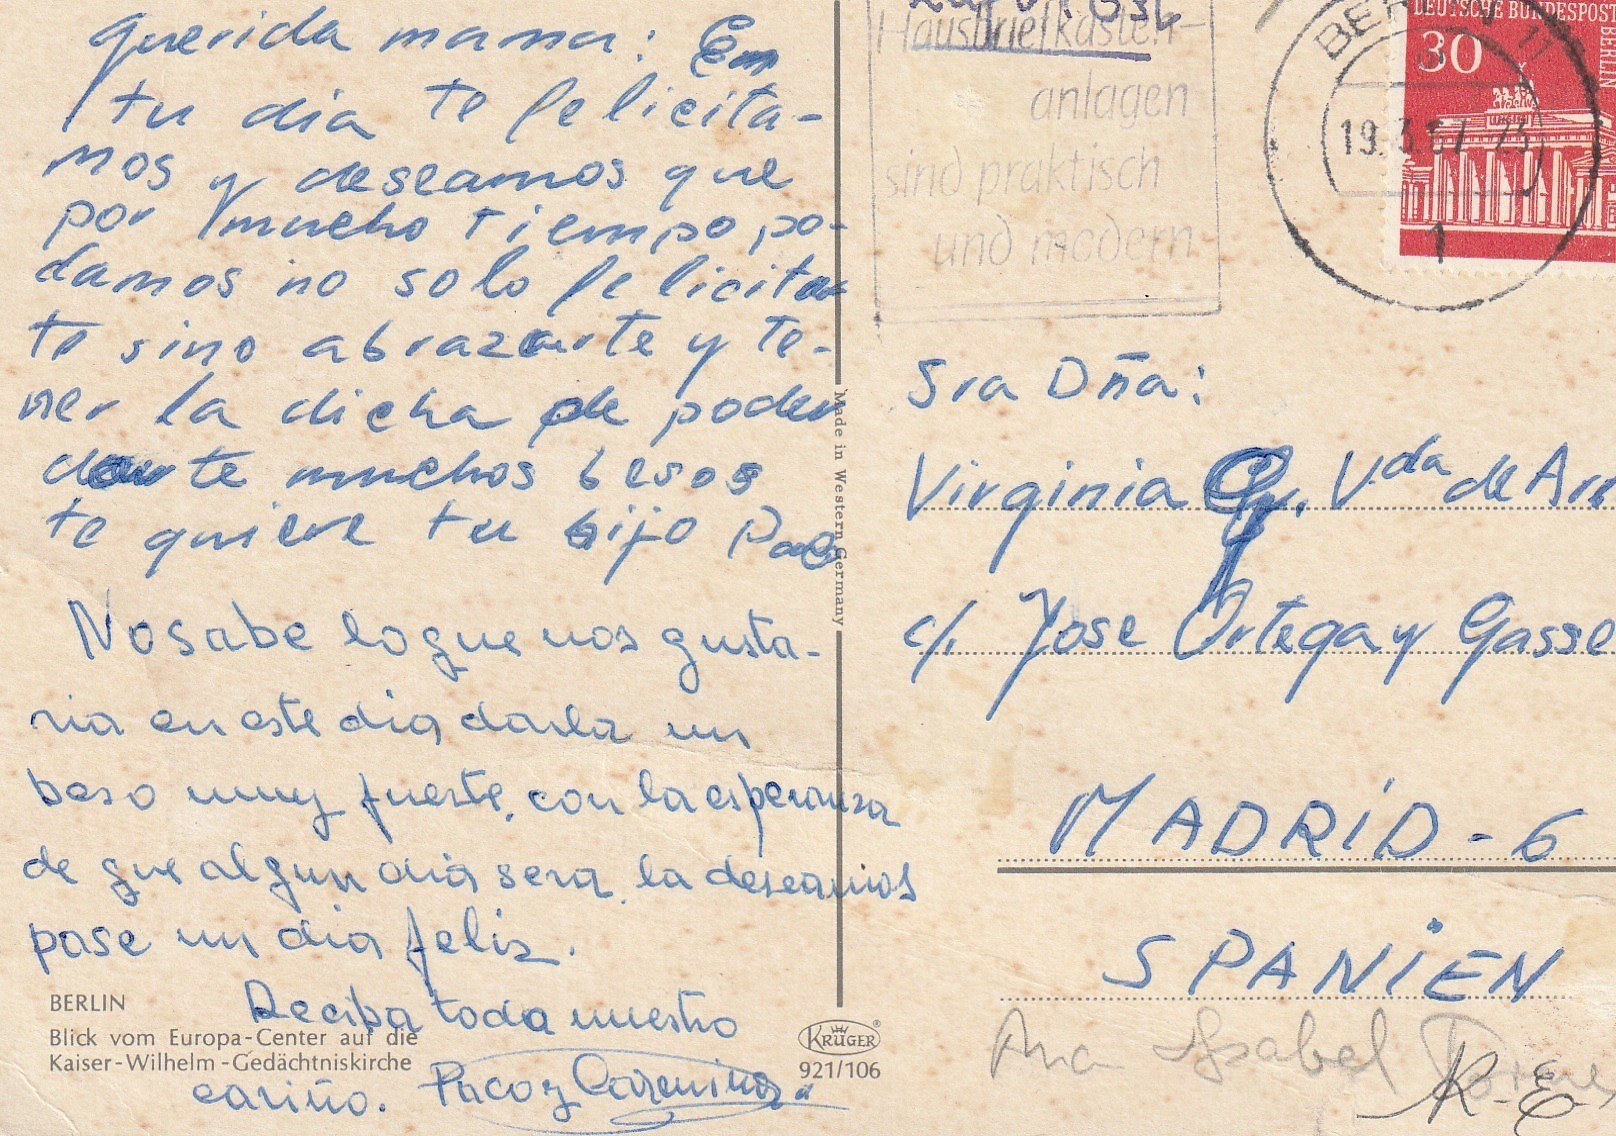 Querida mama: En
tu dia te felicita-
mos y deseamos que
por mucho tiempo po-
damos no solo felicitar
te sino abrazarte y te-
ner la dicha de poder
darte muchos besos
te quiere tu hijo Paco
No sabe lo que nos gusta-
ria en este dia darla un
beso muy fuerte, con la esperanza
de que algun dia sera, la deseamos
pase un dia feliz.
Reciba todo nuestro
cariño. Paco y
BERLIN
Blick vom Europa-Center auf die
Kaiser-Wilhelm-Gedächtniskirche
Made in Western Germany
KRÜGER
921/106
Hausbriefkasten-
anlagen
sind praktisch
und modern
BERLIN 11
19.3.67
1
DEUTSCHE BUNDESPOST
BERLIN
30
Sra Dña:
Virginia Vda de
c/. Jose Ortega y Gasse
MADRID - 6
SPANIEN
Ana Isabel